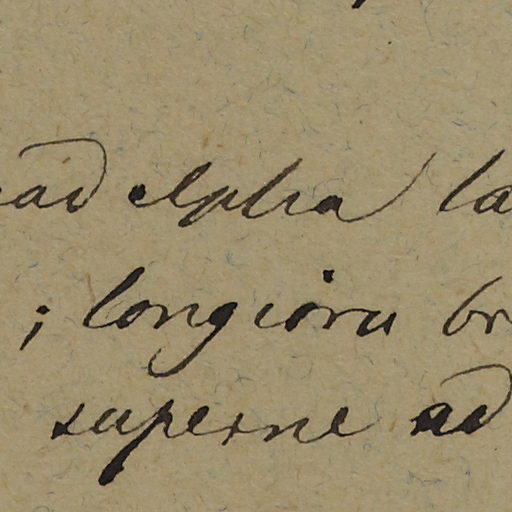 adelpha la
; longiora br
superne ad